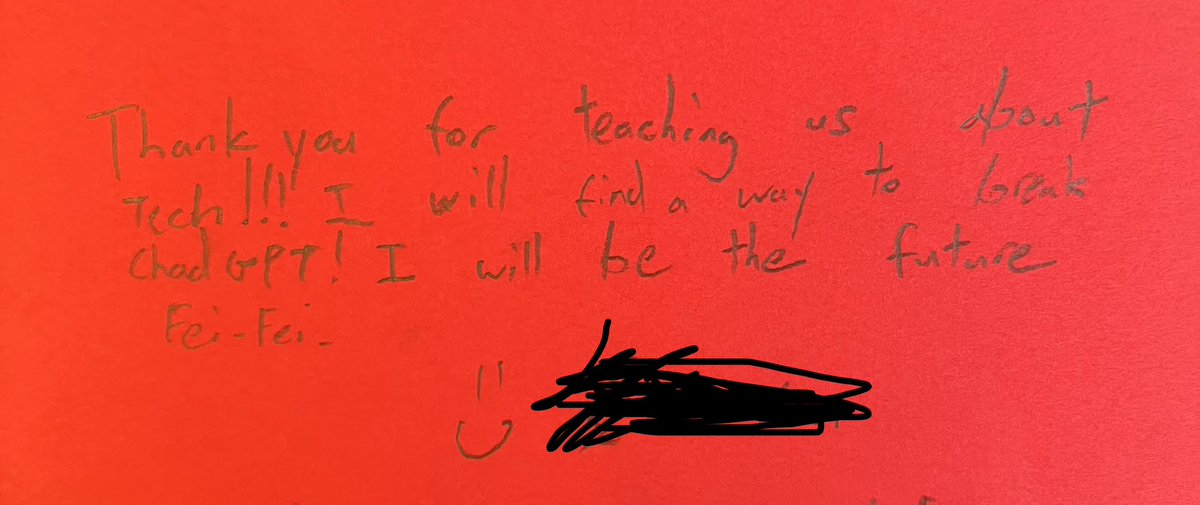 Thank you for teaching us about
Tech!!! I will find a way to break
Chad GPT! I will be the future
Fei-Fei-